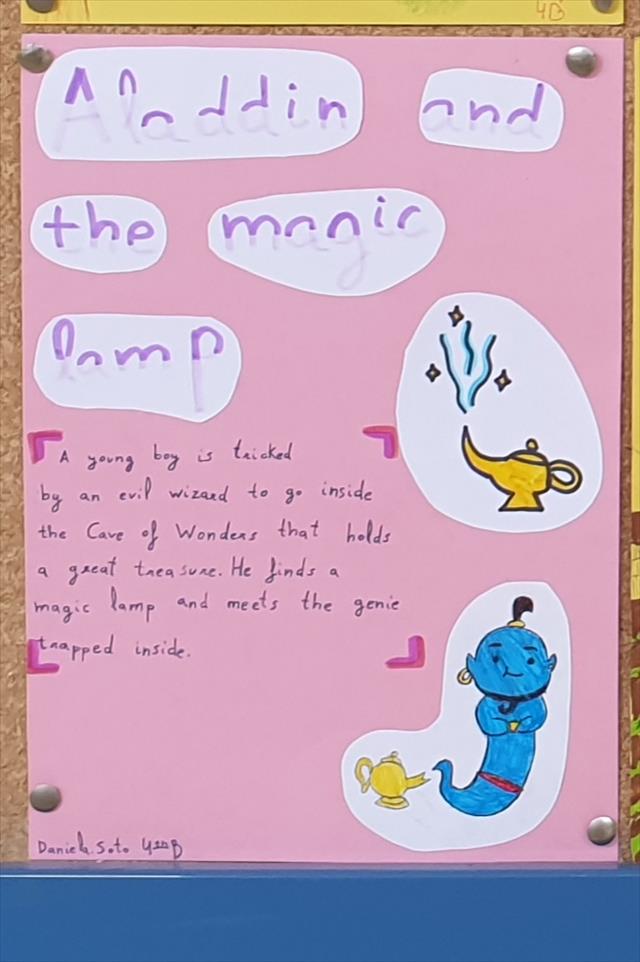 4B
Aladdin and
the magic
lamp
A young boy is tricked
by an evil wizard to go inside
the Cave of Wonders that holds
a great treasure. He finds a
magic lamp and meets the genie
trapped inside.
Daniela Soto